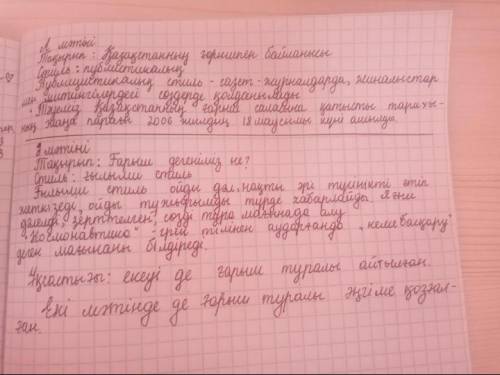 А мәтіні
Тақырып: Қазақстанның ғарышпен байланысы
Стиль: публицистикалық
Публицистикалық стиль - газет - журналдарда, жиналыстар
мен митингілердегі сөздерде қолданылады
Тәуелсіз Қазақстанның ғарыш саласына қатысты тарихы-
ның жаңа парағы 2006 жылдың 18 маусымы күні ашылды.
Ә мәтіні
Тақырып: Ғарыш дегеніміз не?
Стиль: ғылыми стиль
Ғылыми стиль ойды дәл, нақты әрі түсінікті етіп
жеткізеді, ойды тұжырымды түрде хабарлайды. Яғни
дәлелді, зерттелген, сөзді тура мағынада алу
"Космонавтика" - грек тілінен аударғанда "кеме басқару"
деген мағынаны білдіреді.
Ұқсастығы: екеуі де ғарыш туралы айтылған.
Екі мәтінде де ғарыш туралы әңгіме қозғал-
ған.